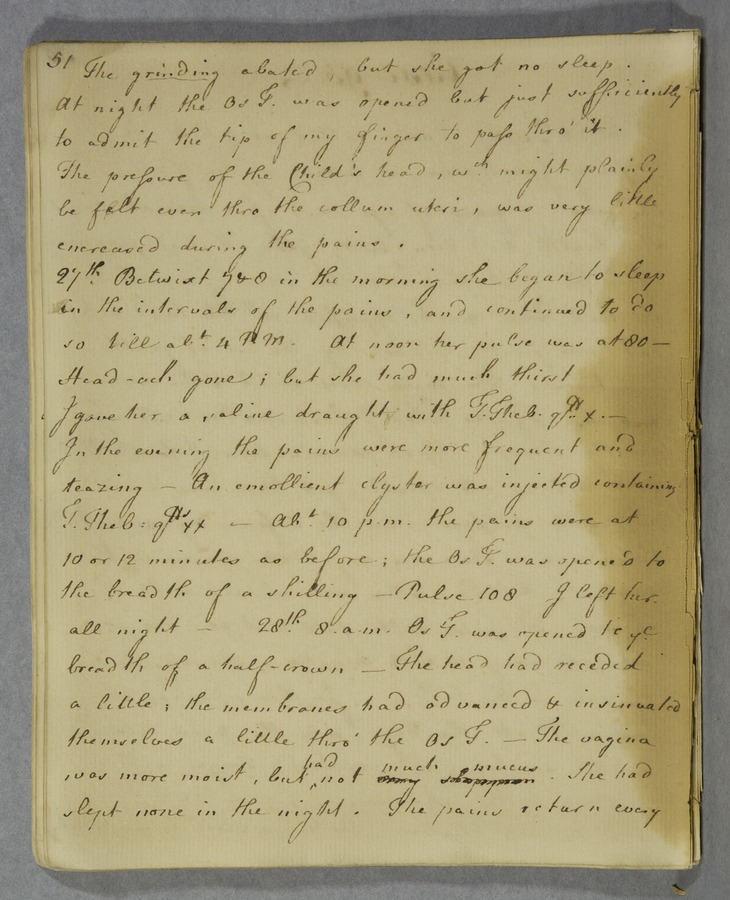 51 The grinding abated, but she got no sleep.
At night the Os T. was opened but just sufficiently
to admit the tip of my finger to pass thro' it.
The pressure of the Child's head, wch might plainly
be felt even thro the collum uteri, was very little
encreased during the pains.
27th. Betwixt 7 & 8 in the morning she began to sleep
in the intervals of the pains, and continued to do
so till abt. 4 P.M. At noon her pulse was at 80 —
Head-ach gone; but she had much thirst
I gave her a saline draught with T. Theb. gtt x. —
In the evening the pains were more frequent and
teazing — An emollient clyster was injected containing
T. Theb: gtts xx — Abt 10 p.m. the pains were at
10 or 12 minutes as before; the Os T. was opene'd to
the breadth of a shilling — Pulse 108 I left her
all night — 28th 8. a.m. Os T. was opened to ye
breadth of a half-crown — The head had receded
a little; the membranes had advanced & insinuated
themselves a little thro' the Os T. — The vagina
was more moist, but had not much mucus. She had
slept none in the night. The pains return every